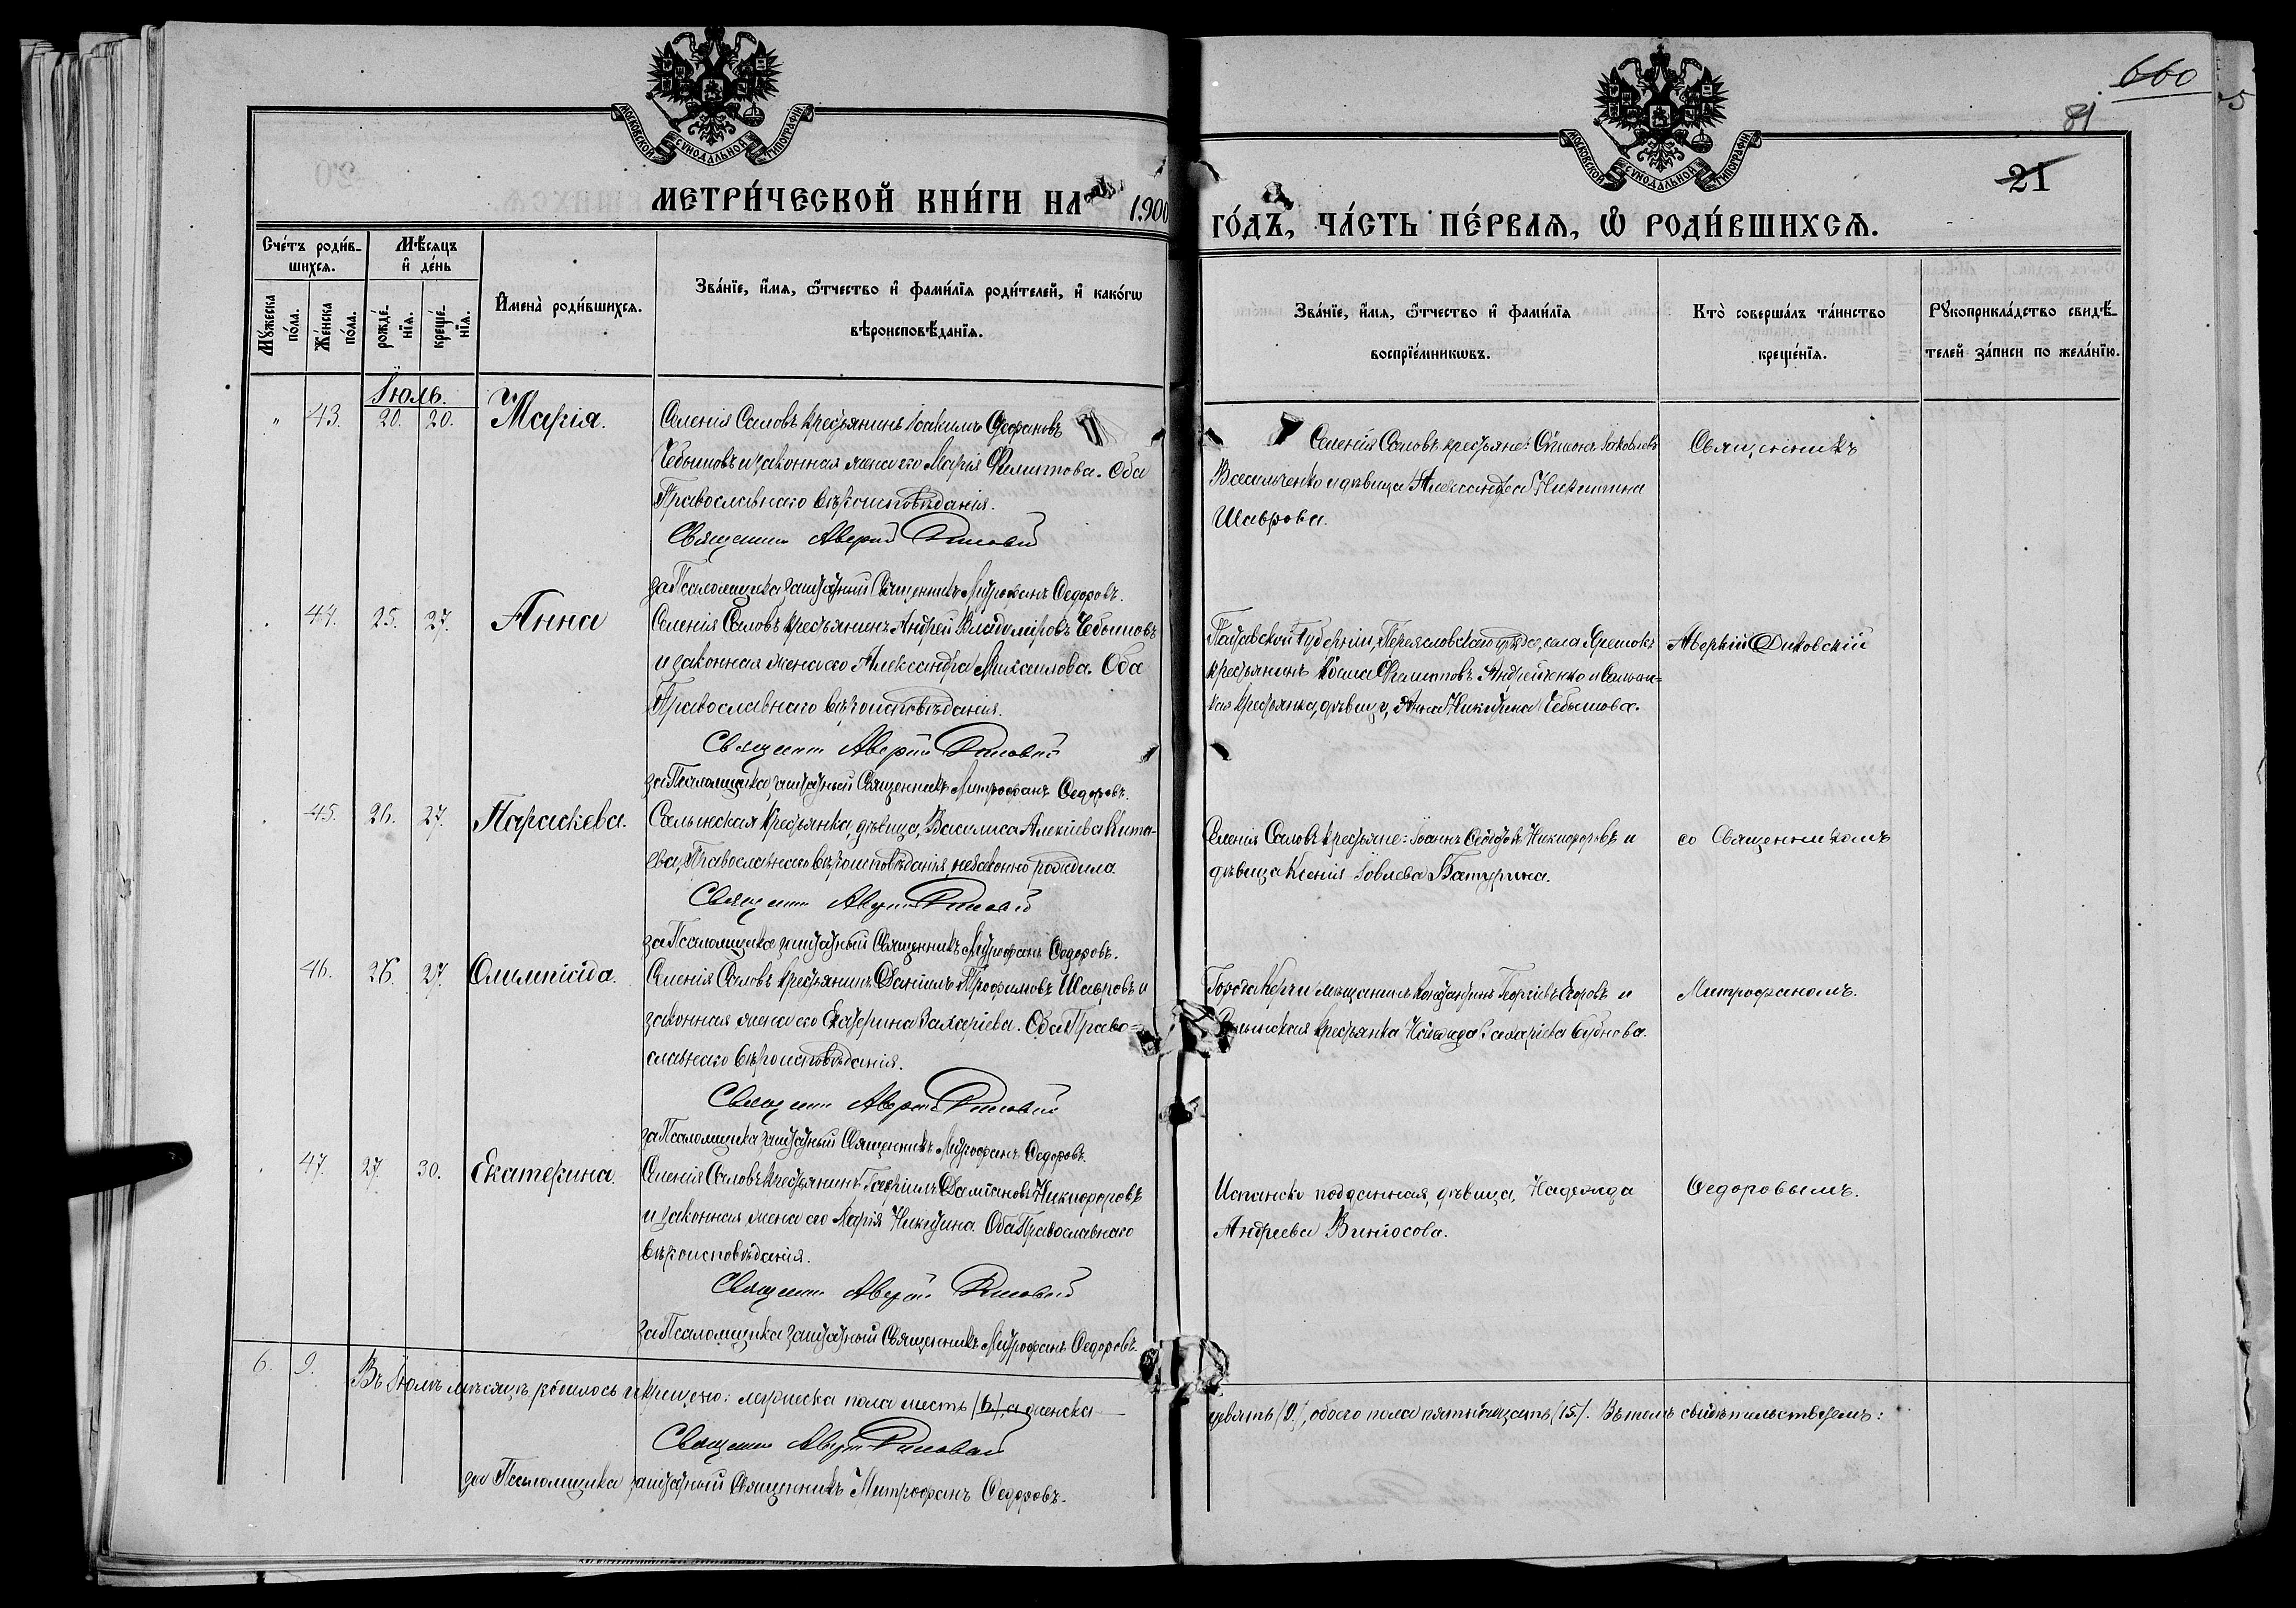 660
81
21
МОСКОВСКОЙ СѴНОДАЛЬНОЙ ТИПОГРАФІИ
МОСКОВСКОЙ СѴНОДАЛЬНОЙ ТИПОГРАФІИ
МЕТРИ́ЧЕСКОЙ КНИ́ГИ НА 1900 ГО́ДЪ, ЧА́СТЬ ПЕ́РВАѦ, Ѡ҆ РОДИ́ВШИХСѦ.
Сче́тъ роди́в-
шихсѧ.
Мꙋжеска по́ла.
Же́нска по́ла.
Мѣ́сѧцъ
и҆ де́нь
рожде́нїѧ.
креще́нїѧ.
И҆мена̀ роди́вшихсѧ.
Зва́нїе, и҆́мѧ, ѻ҆́тчество и҆ фами́лїѧ роди́телей, и҆ како́гѡ
вѣроисповѣ́данїѧ.
Зва́нїе, и҆́мѧ, ѻ҆́тчество и҆ фами́лїѧ
воспрїе́мникѡвъ.
Кто̀ соверша́лъ та́инство
креще́нїѧ.
Рꙋкоприкла́дство свидѣ́-
телей за́писи по жела́нїю.
Іюль.
" 43. 20. 20. Марія.
Селенія Саловъ крестьянинъ Іоакимъ Стефановъ
Чебышовъ и законная жена его Марія Филиппова. Оба
Православнаго вѣроисповѣданія.
Священникъ Аверкій Диковскій
за Псаломщика заштатный Священникъ Митрофанъ Ѳедоровъ.
Селенія Саловъ крестьяне: Симеонъ Іаковлевъ
Васильченко и дѣвица Александра Никитина
Шаврова.
Священникъ
44. 25. 27. Анна
Селенія Саловъ крестьянинъ Андрей Владиміровъ Чебышовъ
и законная жена его Александра Михаилова. Оба
Православнаго вѣроисповѣданія.
Священникъ Аверкій Диковскій
за Псаломщика заштатный Священникъ Митрофанъ Ѳедоровъ.
Полтавской Губерніи, Переясловскаго уѣзда, села
крестьянинъ Косма Филипповъ Андрейченко и Салын-
ская крестьянка, дѣвица, Анна Никитина Чебышова.
Аверкій Диковскій
45. 26. 27. Параскева.
Салынская крестьянка, дѣвица, Василиса Алексіева Кита-
ева, Православнаго вѣроисповѣданія, незаконно родила.
Священникъ Аверкій Диковскій
за Псаломщика заштатный Священникъ Митрофанъ Ѳедоровъ.
Селенія Саловъ крестьяне: Іоаннъ Никифоровъ и
дѣвица Ксенія Іовлева Батурина.
со Священникомъ
46. 26. 27. Олимпіада.
Селенія Саловъ крестьянинъ Даніилъ Трофимовъ Шавровъ и
законная жена его Екатерина Захаріева. Оба Право-
славнаго вѣроисповѣданія.
Священникъ Аверкій Диковскій
за Псаломщика заштатный Священникъ Митрофанъ Ѳедоровъ.
Города Керчи мѣщанинъ Константинъ Георгіевъ и
Салынская крестьянка Захаріева Бубнова.
Митрофаномъ.
47. 27. 30. Екатерина.
Селенія Саловъ крестьянинъ Гавріилъ Даміановъ Никифоровъ
и законная жена его Марія Никитина. Оба Православнаго
вѣроисповѣданія.
Священникъ Аверкій Диковскій
за Псаломщика заштатный Священникъ Митрофанъ Ѳедоровъ.
Испанско подданная, дѣвица, Надежда
Андреева Виньосова.
Ѳедоровымъ.
6. 9. Въ Іюлѣ мѣсяцѣ родилось и крещено: мужеска пола шесть /6/, а женска девять /9/, обоего пола пятнадцать /15/. Въ томъ свидѣтельствуемъ:
Священникъ Аверкій Диковскій
за Псаломщика заштатный Священникъ Митрофанъ Ѳедоровъ.